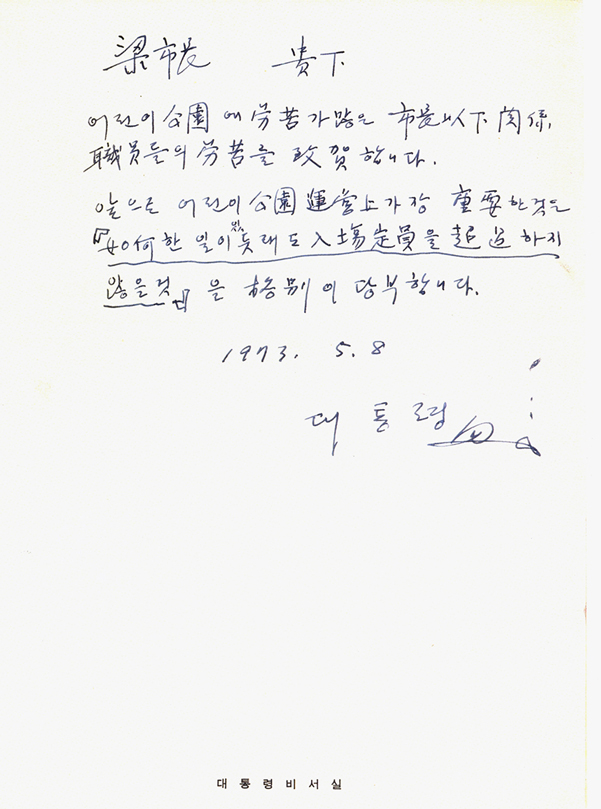 梁市長 貴下
어린이公園에 労苦가많은 市長以下 関係,
職員들의 労苦를 致賀합니다.
앞으로 어린이公園 運営上가장 重要한것은
『如何한 일이 있드래도 入場定員을 超過하지
않을것』을 各別이 당부합니다.
1973. 5. 8
대통령
대통령비서실